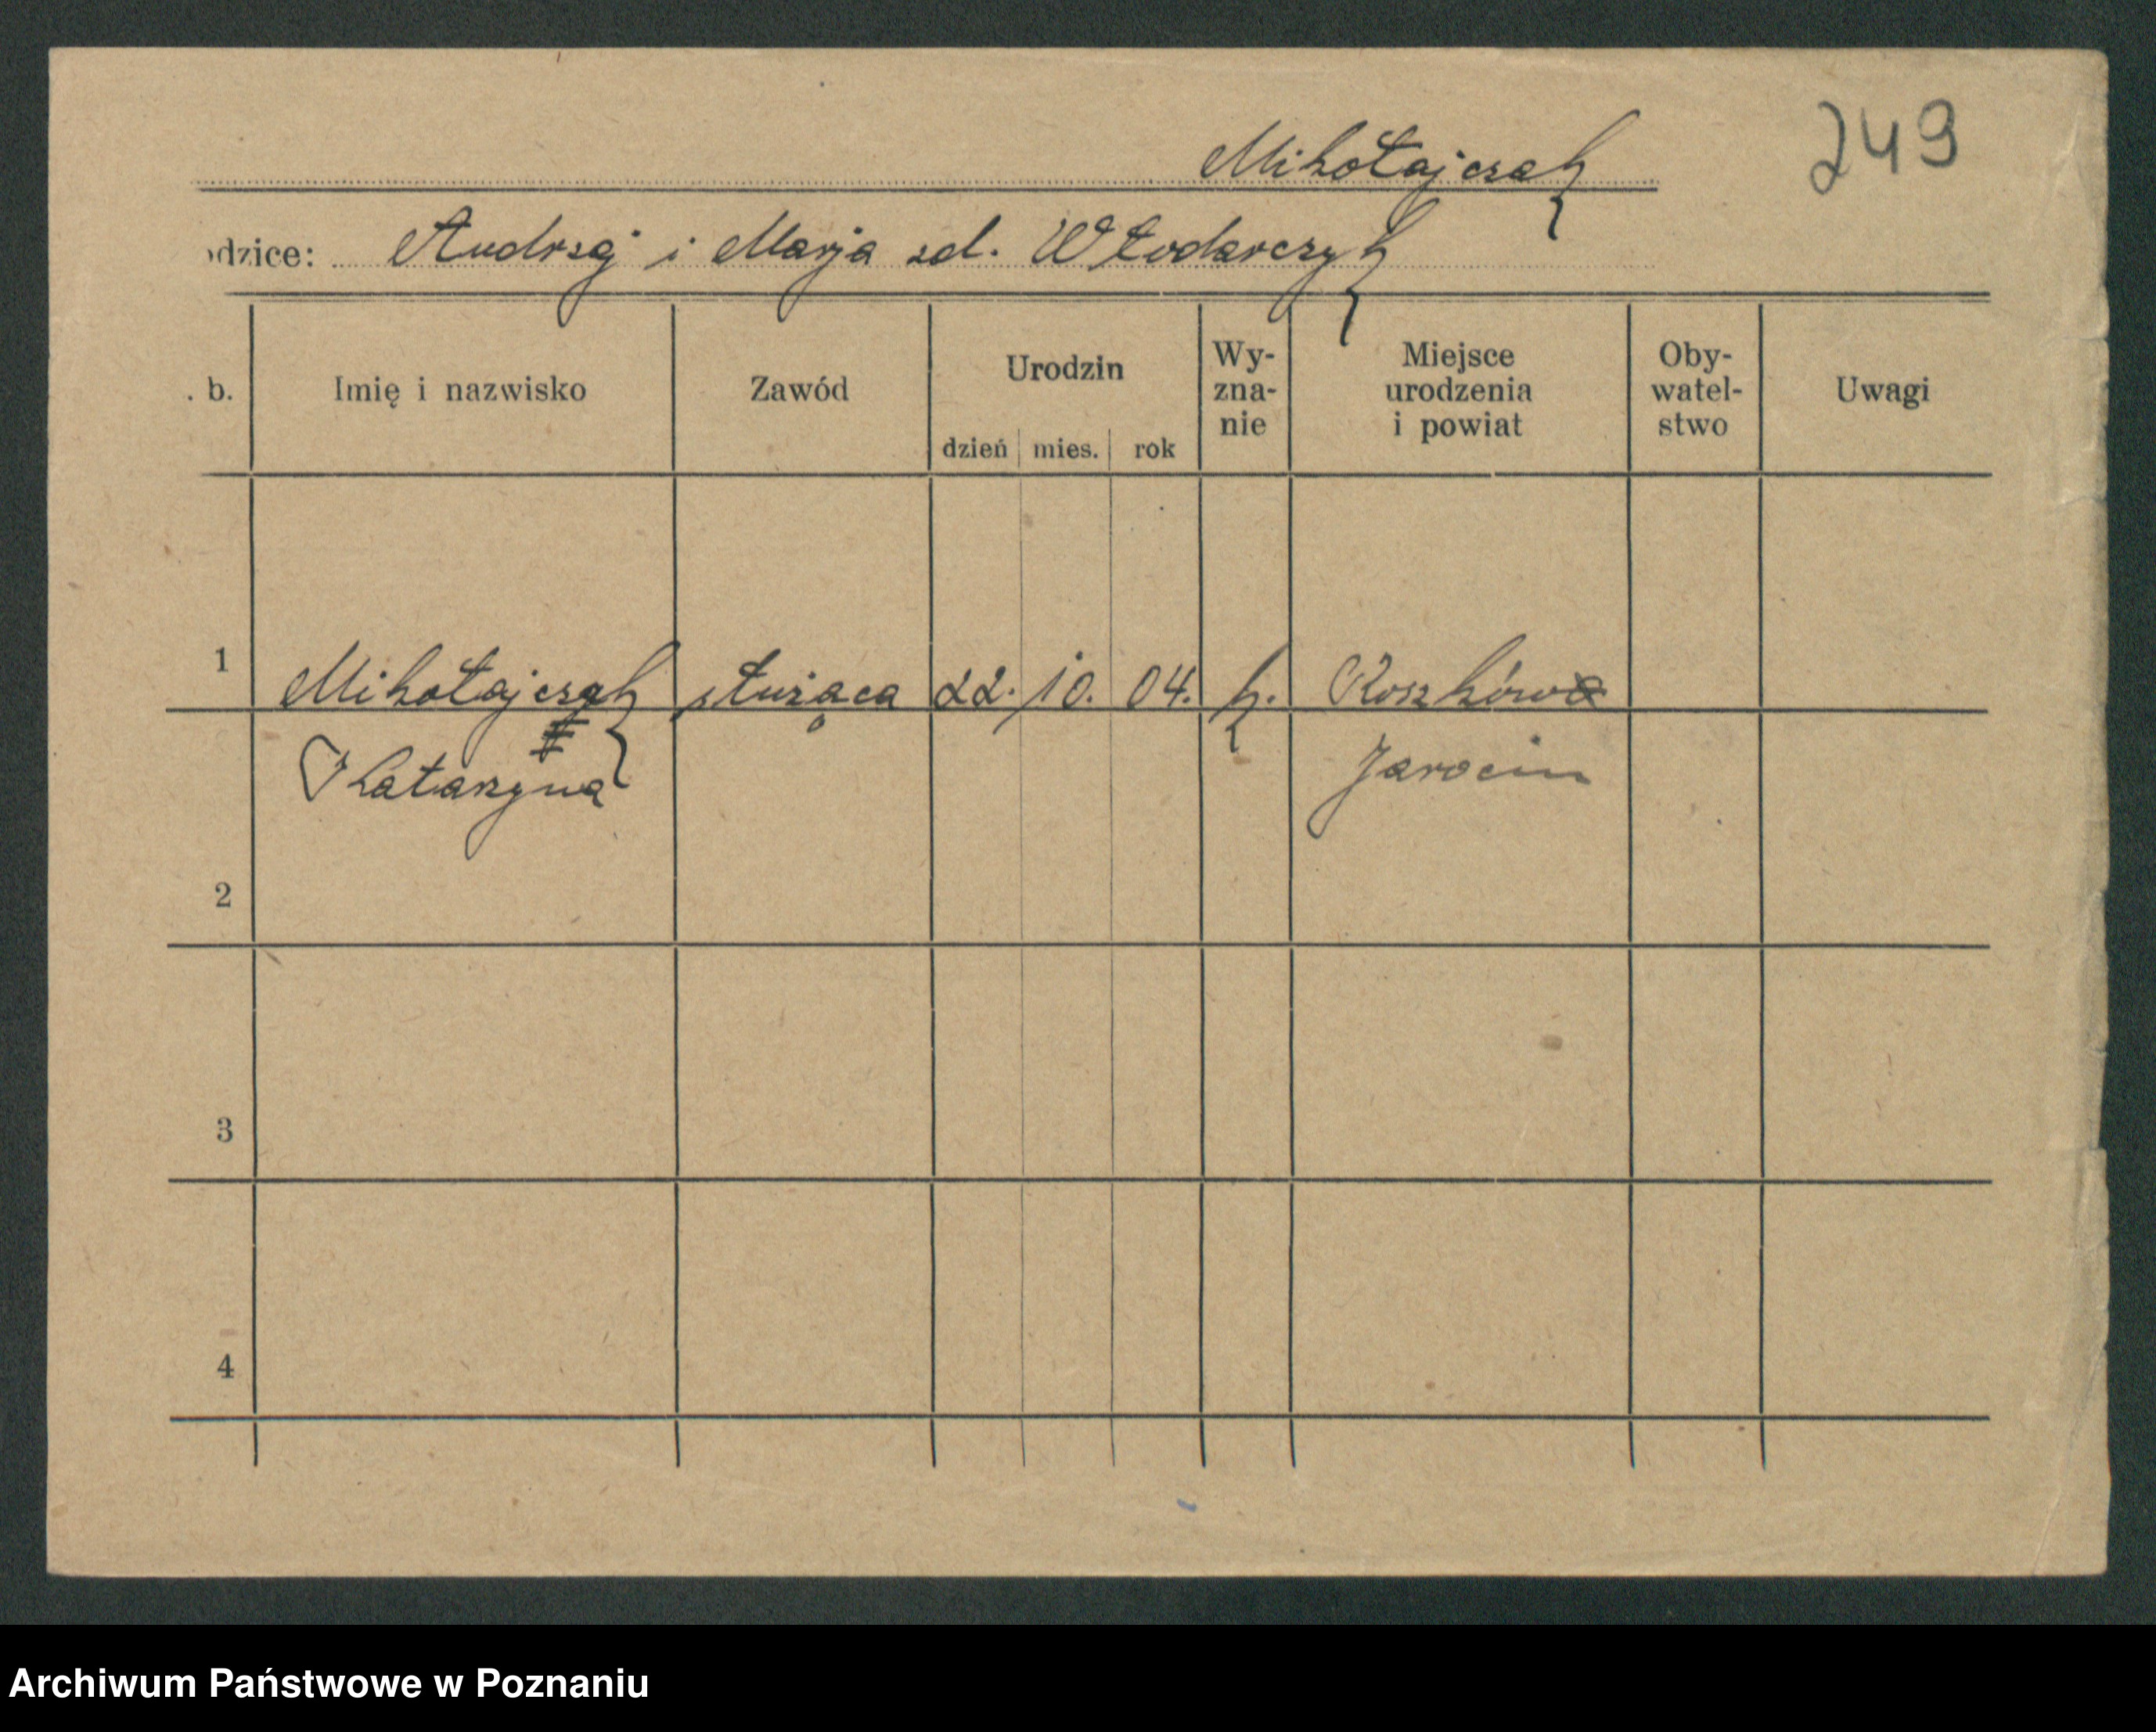 249
Mikołajczak
odzice: Andrzej i Marja zd. Włodarczyk
. b.
Imię i nazwisko
Zawód
Urodzin
dzień mies. rok
Wy-
zna-
nie
Miejsce
urodzenia
i powiat
Oby-
watel-
stwo
Uwagi
1 Mikołajczak służąca 22. 10. 04. k. Roszków
Katarzyna Jarocin
2
3
4
Archiwum Państwowe w Poznaniu